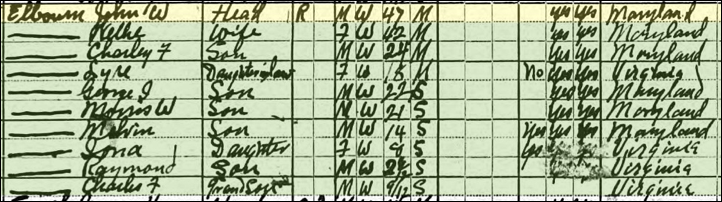 Elbourn John W Head R M W 47 M yes yes Maryland
Wife F W 42 M yes yes Maryland
Charley F Son M W 24 M yes yes Maryland
Daughterinlaw F W M No yes yes Virginia
George J Son M W 22 S yes yes Maryland
Morris W Son M W 21 S yes yes Maryland
Melvin Son M W 14 S Yes yes yes Maryland
Iona Daughter F W 9 S yes Virginia
Raymond Son M W S Virginia
Charles F Grand Son M W 9/12 S Virginia